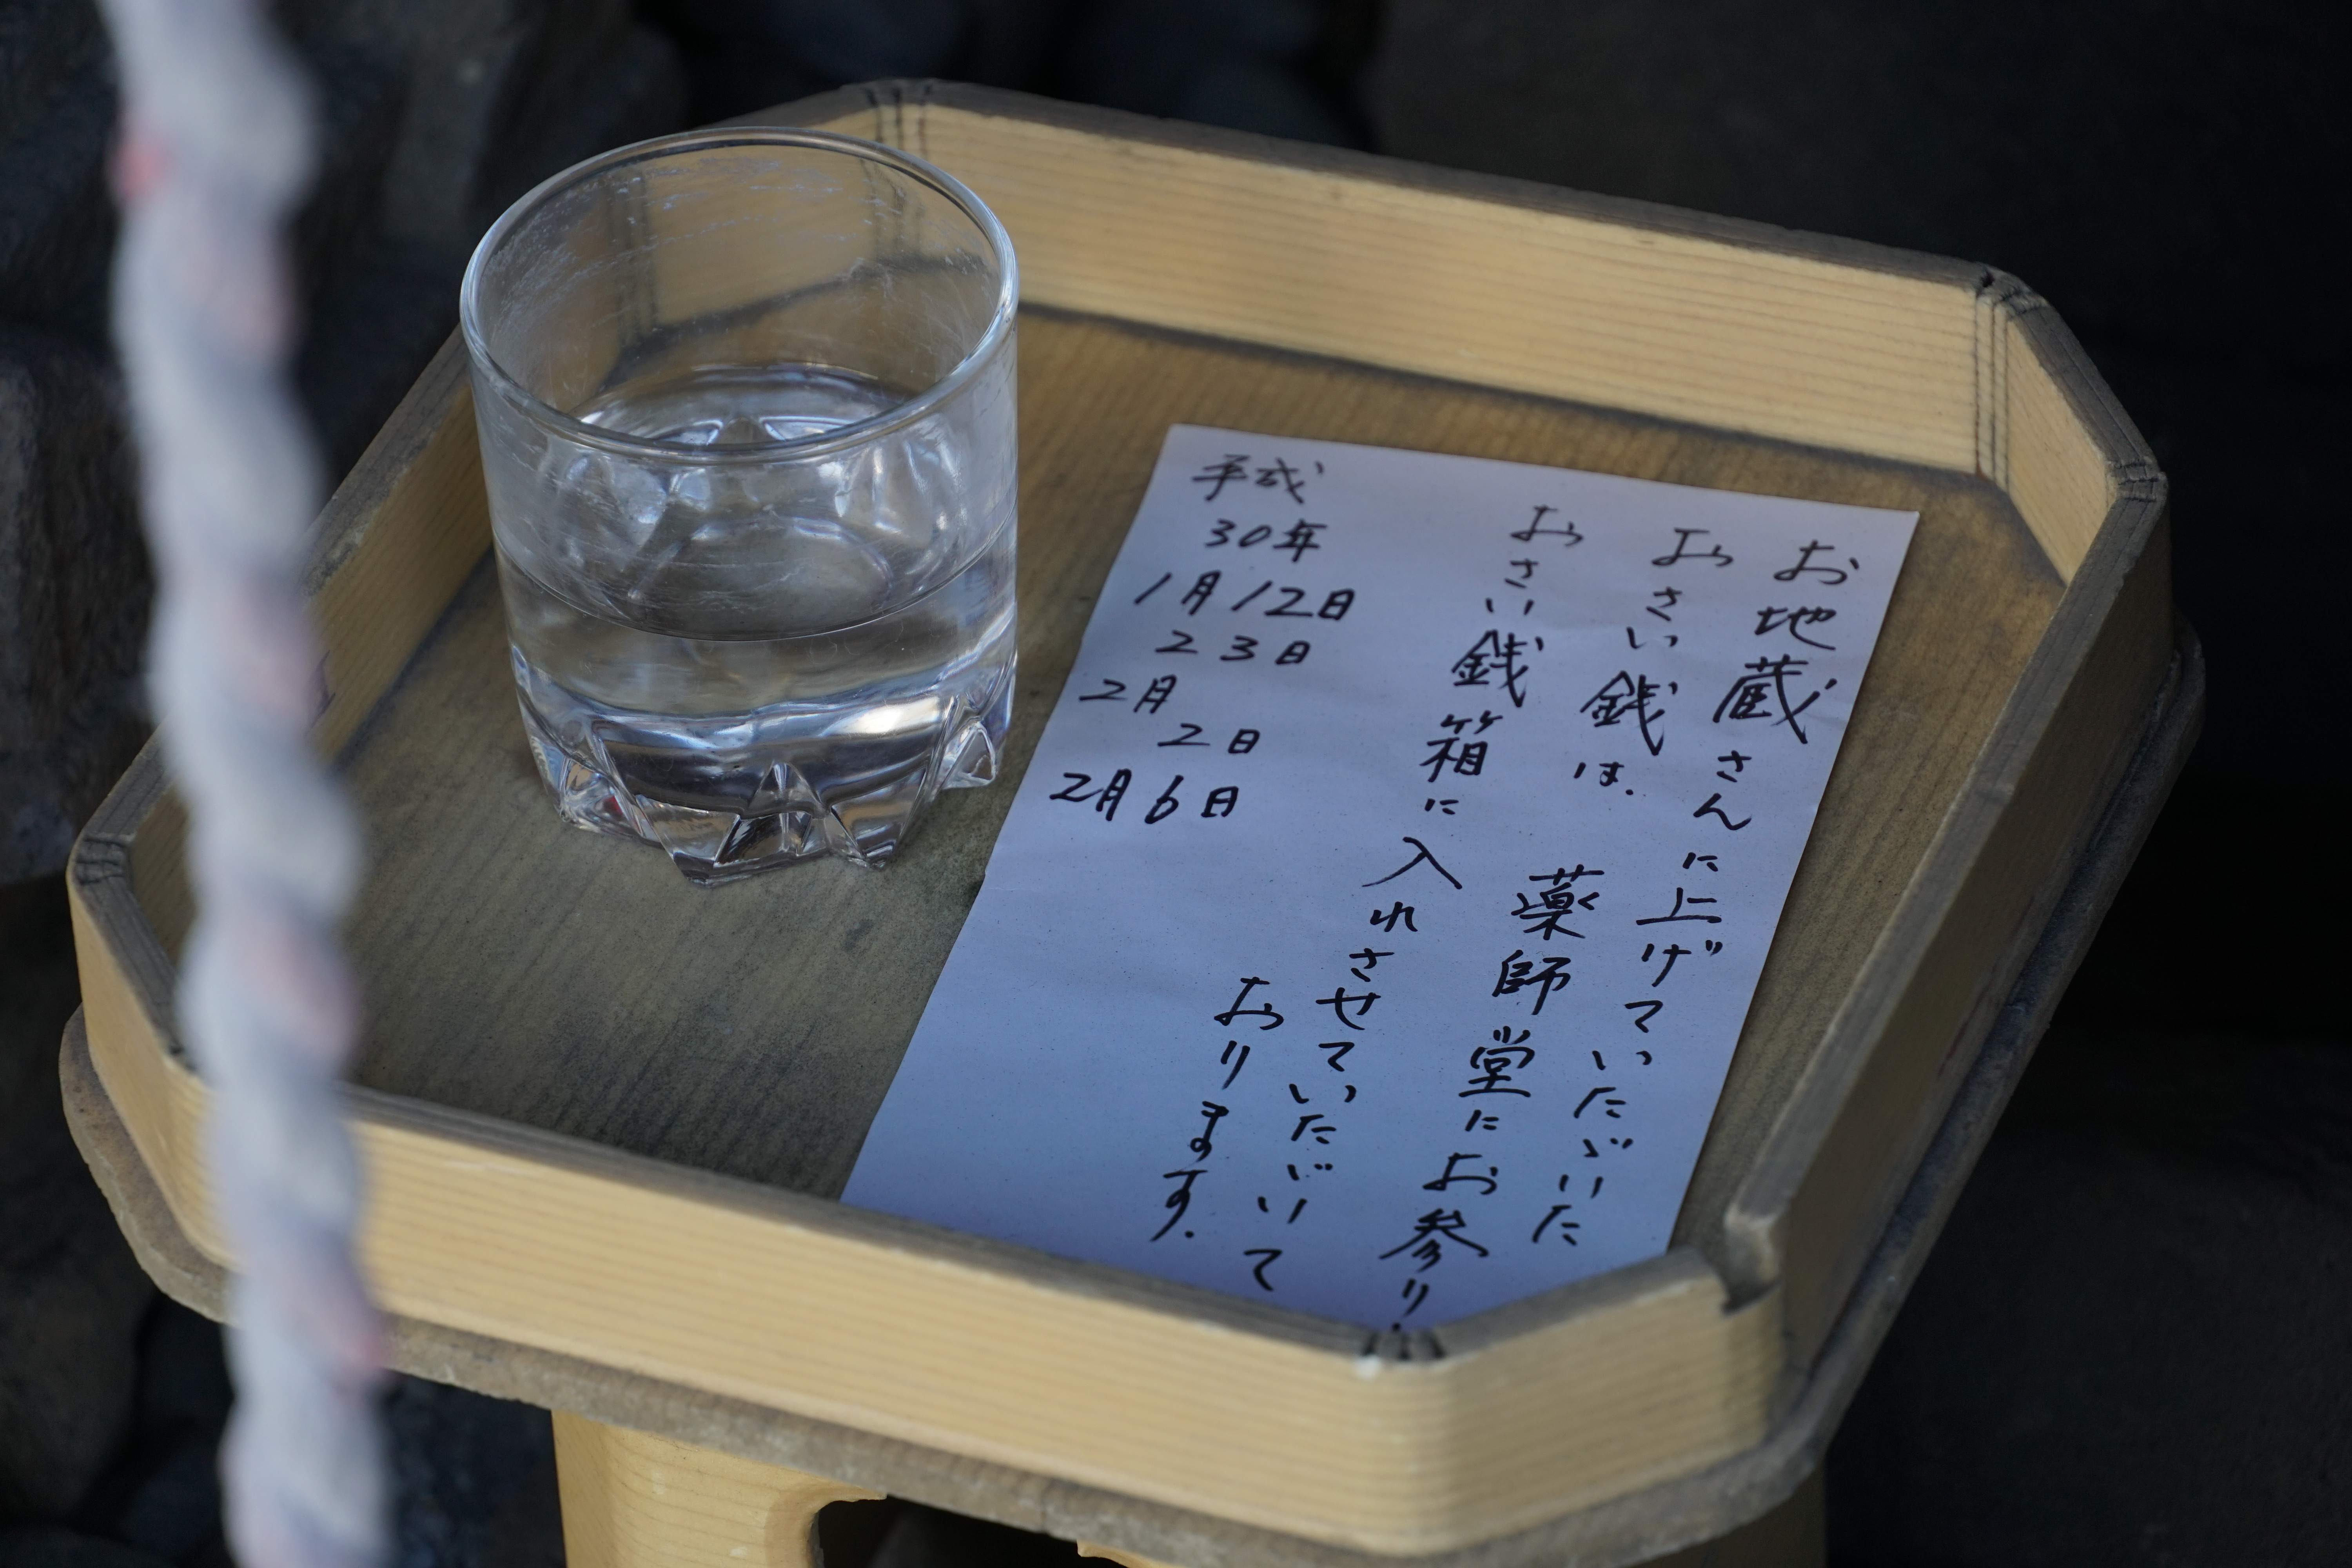 お地蔵さんに上げていただいた
おさい銭は、薬師堂にお参り、
おさい銭箱に入れさせていただいて
おります。
平成
30年
1月12日
23日
2月
2日
2月6日